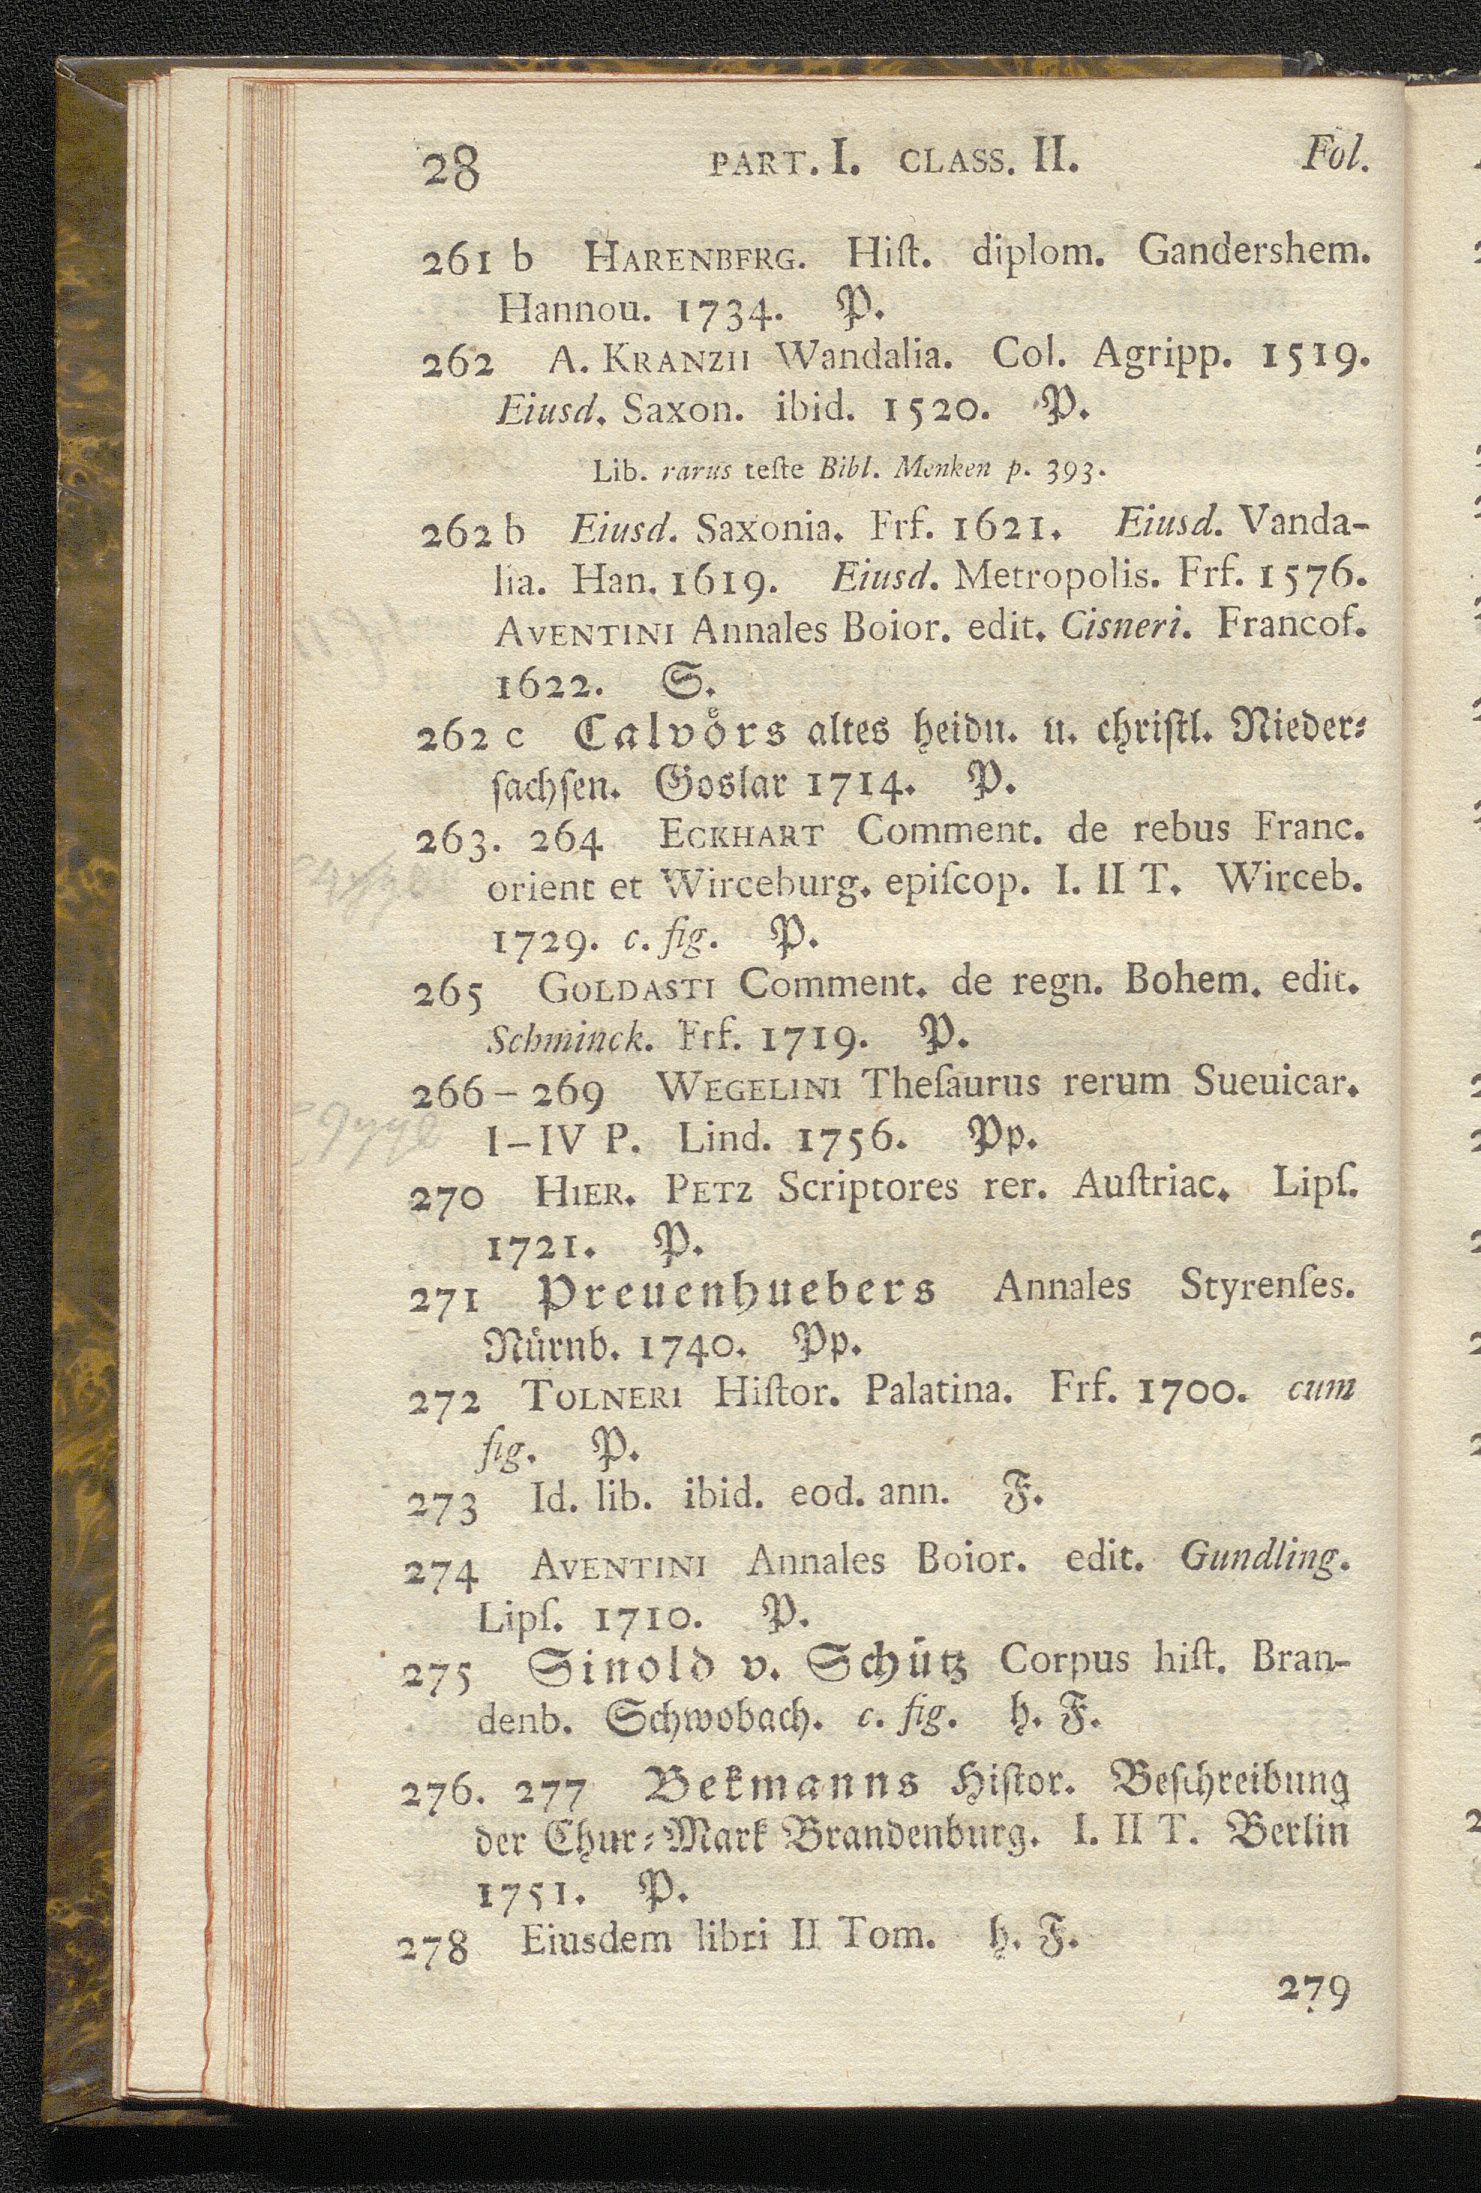 28 PART. I. CLASS. II. Fol.
261 b HARENBERG. Hiſt. diplom. Gandershem.
Hannou. 1734. P.
262 A. KRANZII Wandalia. Col. Agripp. 1519.
Eiusd. Saxon. ibid. 1520. P.
Lib. rarus teſte Bibl. Menken p. 393.
262 b Eiusd. Saxonia. Frf. 1621. Eiusd. Vanda-
lia. Han. 1619. Eiusd. Metropolis. Frf. 1576.
AVENTINI Annales Boior. edit. Cisneri. Francof.
1622. S.
262 c Calvörs altes heidn. u. chriſtl. Nieder-
ſachſen. Goslar 1714. P.
263. 264 ECKHART Comment. de rebus Franc.
orient et Wirceburg. epiſcop. I. II T. Wirceb.
1729. c. fig. P.
265 GOLDASTI Comment. de regn. Bohem. edit.
Schminck. Frf. 1719. P.
266–269 WEGELINI Theſaurus rerum Sueuicar.
I–IV P. Lind. 1756. Pp.
270 HIER. PETZ Scriptores rer. Auſtriac. Lipſ.
1721. P.
271 Preuenhuebers Annales Styrenſes.
Nürnb. 1740. Pp.
272 TOLNERI Hiſtor. Palatina. Frf. 1700. cum
fig. P.
273 Id. lib. ibid. eod. ann. F.
274 AVENTINI Annales Boior. edit. Gundling.
Lipſ. 1710. P.
275 Sinold v. Schütz Corpus hiſt. Bran-
denb. Schwobach. c. fig. h. F.
276. 277 Bekmanns Hiſtor. Beſchreibung
der Chur-Mark Brandenburg. I. II T. Berlin
1751. P.
278 Eiusdem libri II Tom. h. F.
279